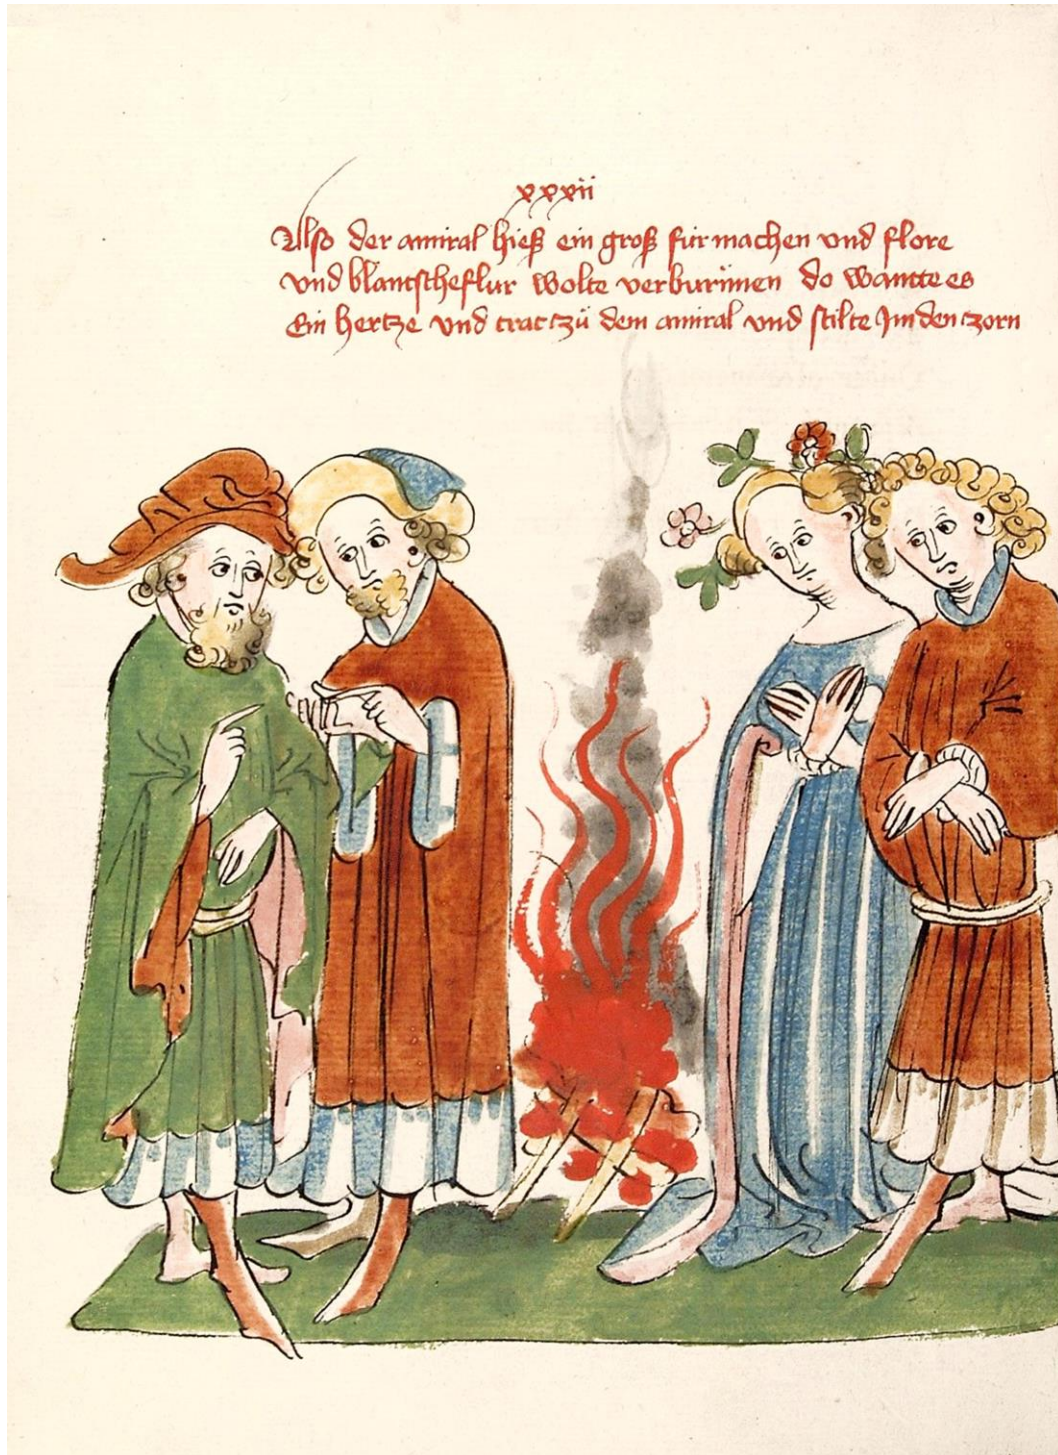 xxxii
Also der amiral hieß ein groß für machen vnd flore
vnd blantscheflur wolte verburnnen do wante es
Ein hertze vnd trat zü dem amiral vnd stilte Jm den zorn